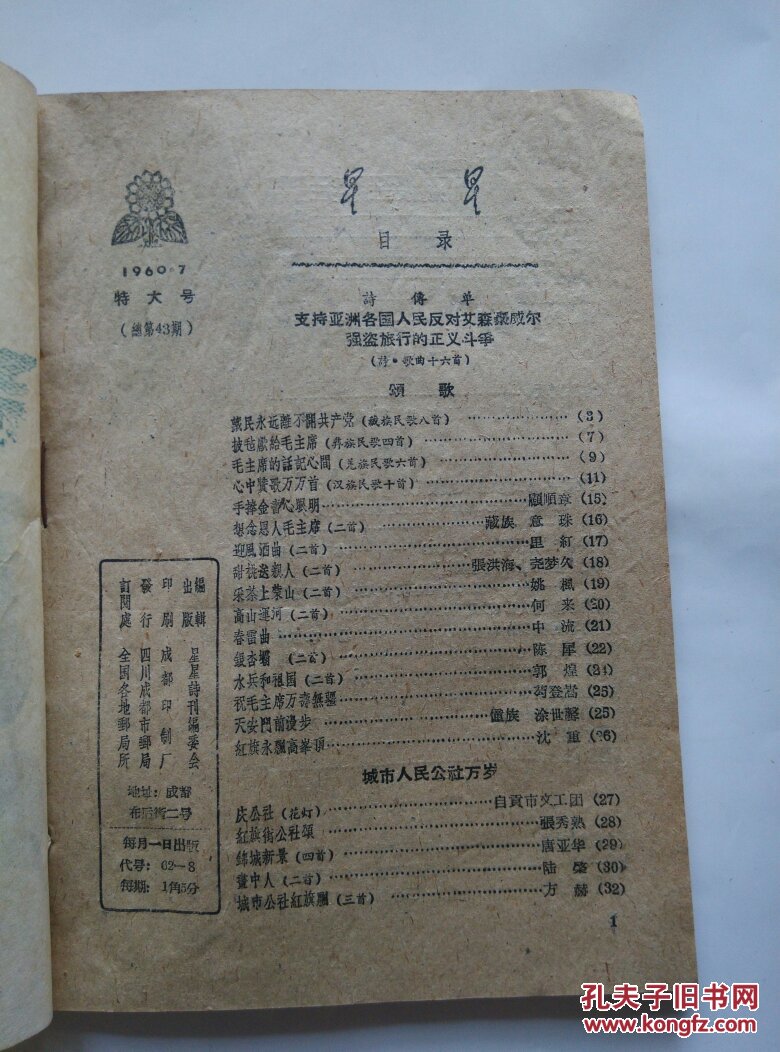 星 星
目 录
1960·7
特大号
(總第43期)
詩 傳 单
支持亚洲各国人民反对艾森豪威尔
强盗旅行的正义斗爭
(詩·歌曲十六首)
頌 歌
藏民永远離不開共产党 (藏族民歌八首) (3)
披毡献給毛主席 (彝族民歌四首) (7)
毛主席的話記心間 (羌族民歌六首) (9)
心中贊歌万万首 (汉族民歌十首) (11)
手捧金書心眼明 顧順章 (15)
想念恩人毛主席 (二首) 藏族 意 珠 (16)
迎風洒曲 (二首) 里 紅 (17)
甜桃送親人 (二首) 張洪海、尧梦久 (18)
采茶上蒙山 (二首) 姚 楓 (19)
高山運河 (二首) 何 来 (20)
春雷曲 中 流 (21)
銀杏壩 (二首) 陈 犀 (22)
水兵和祖国 (二首) 郭 煌 (24)
祝毛主席万壽無疆 苟登嵩 (25)
天安門前漫步 僮族 涂世馨 (25)
紅旗永飄高峯頂 沈 重 (26)
城市人民公社万岁
庆公社 (花灯) 自貢市文工团 (27)
紅旗街公社頌 張秀熟 (28)
錦城新景 (四首) 唐亚华 (29)
畫中人 (二首) 陆 棨 (30)
城市公社紅旗飄 (三首) 方 赫 (32)
編輯 星星詩刊編委会
出版
印刷 成都印制厂
發行 四川成都市郵局
訂閱處 全国各地郵局所
地址:成都
布后街二号
每月一日出版
代号:62—8
每期:1角5分
1
孔夫子旧书网
www.kongfz.com